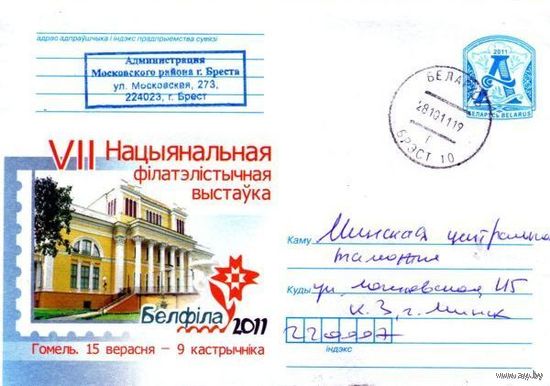 адрас адпраўшчыка і індэкс прадпрыемства сувязі
Администрация
Московского района г. Бреста
ул. Московская, 273,
224023, г. Брест
2011
А
БЕЛАРУСЬ BELARUS
БЕЛА
28 10 11 19
Г
БРЭСТ 10
VII Нацыянальная
філатэлістычная
выстаўка
Белфіла 2011
Гомель. 15 верасня – 9 кастрычніка
Каму Минская центральная
таможня
Куды ул. Московская
г. Минск
220007
індэкс
www.ay.by